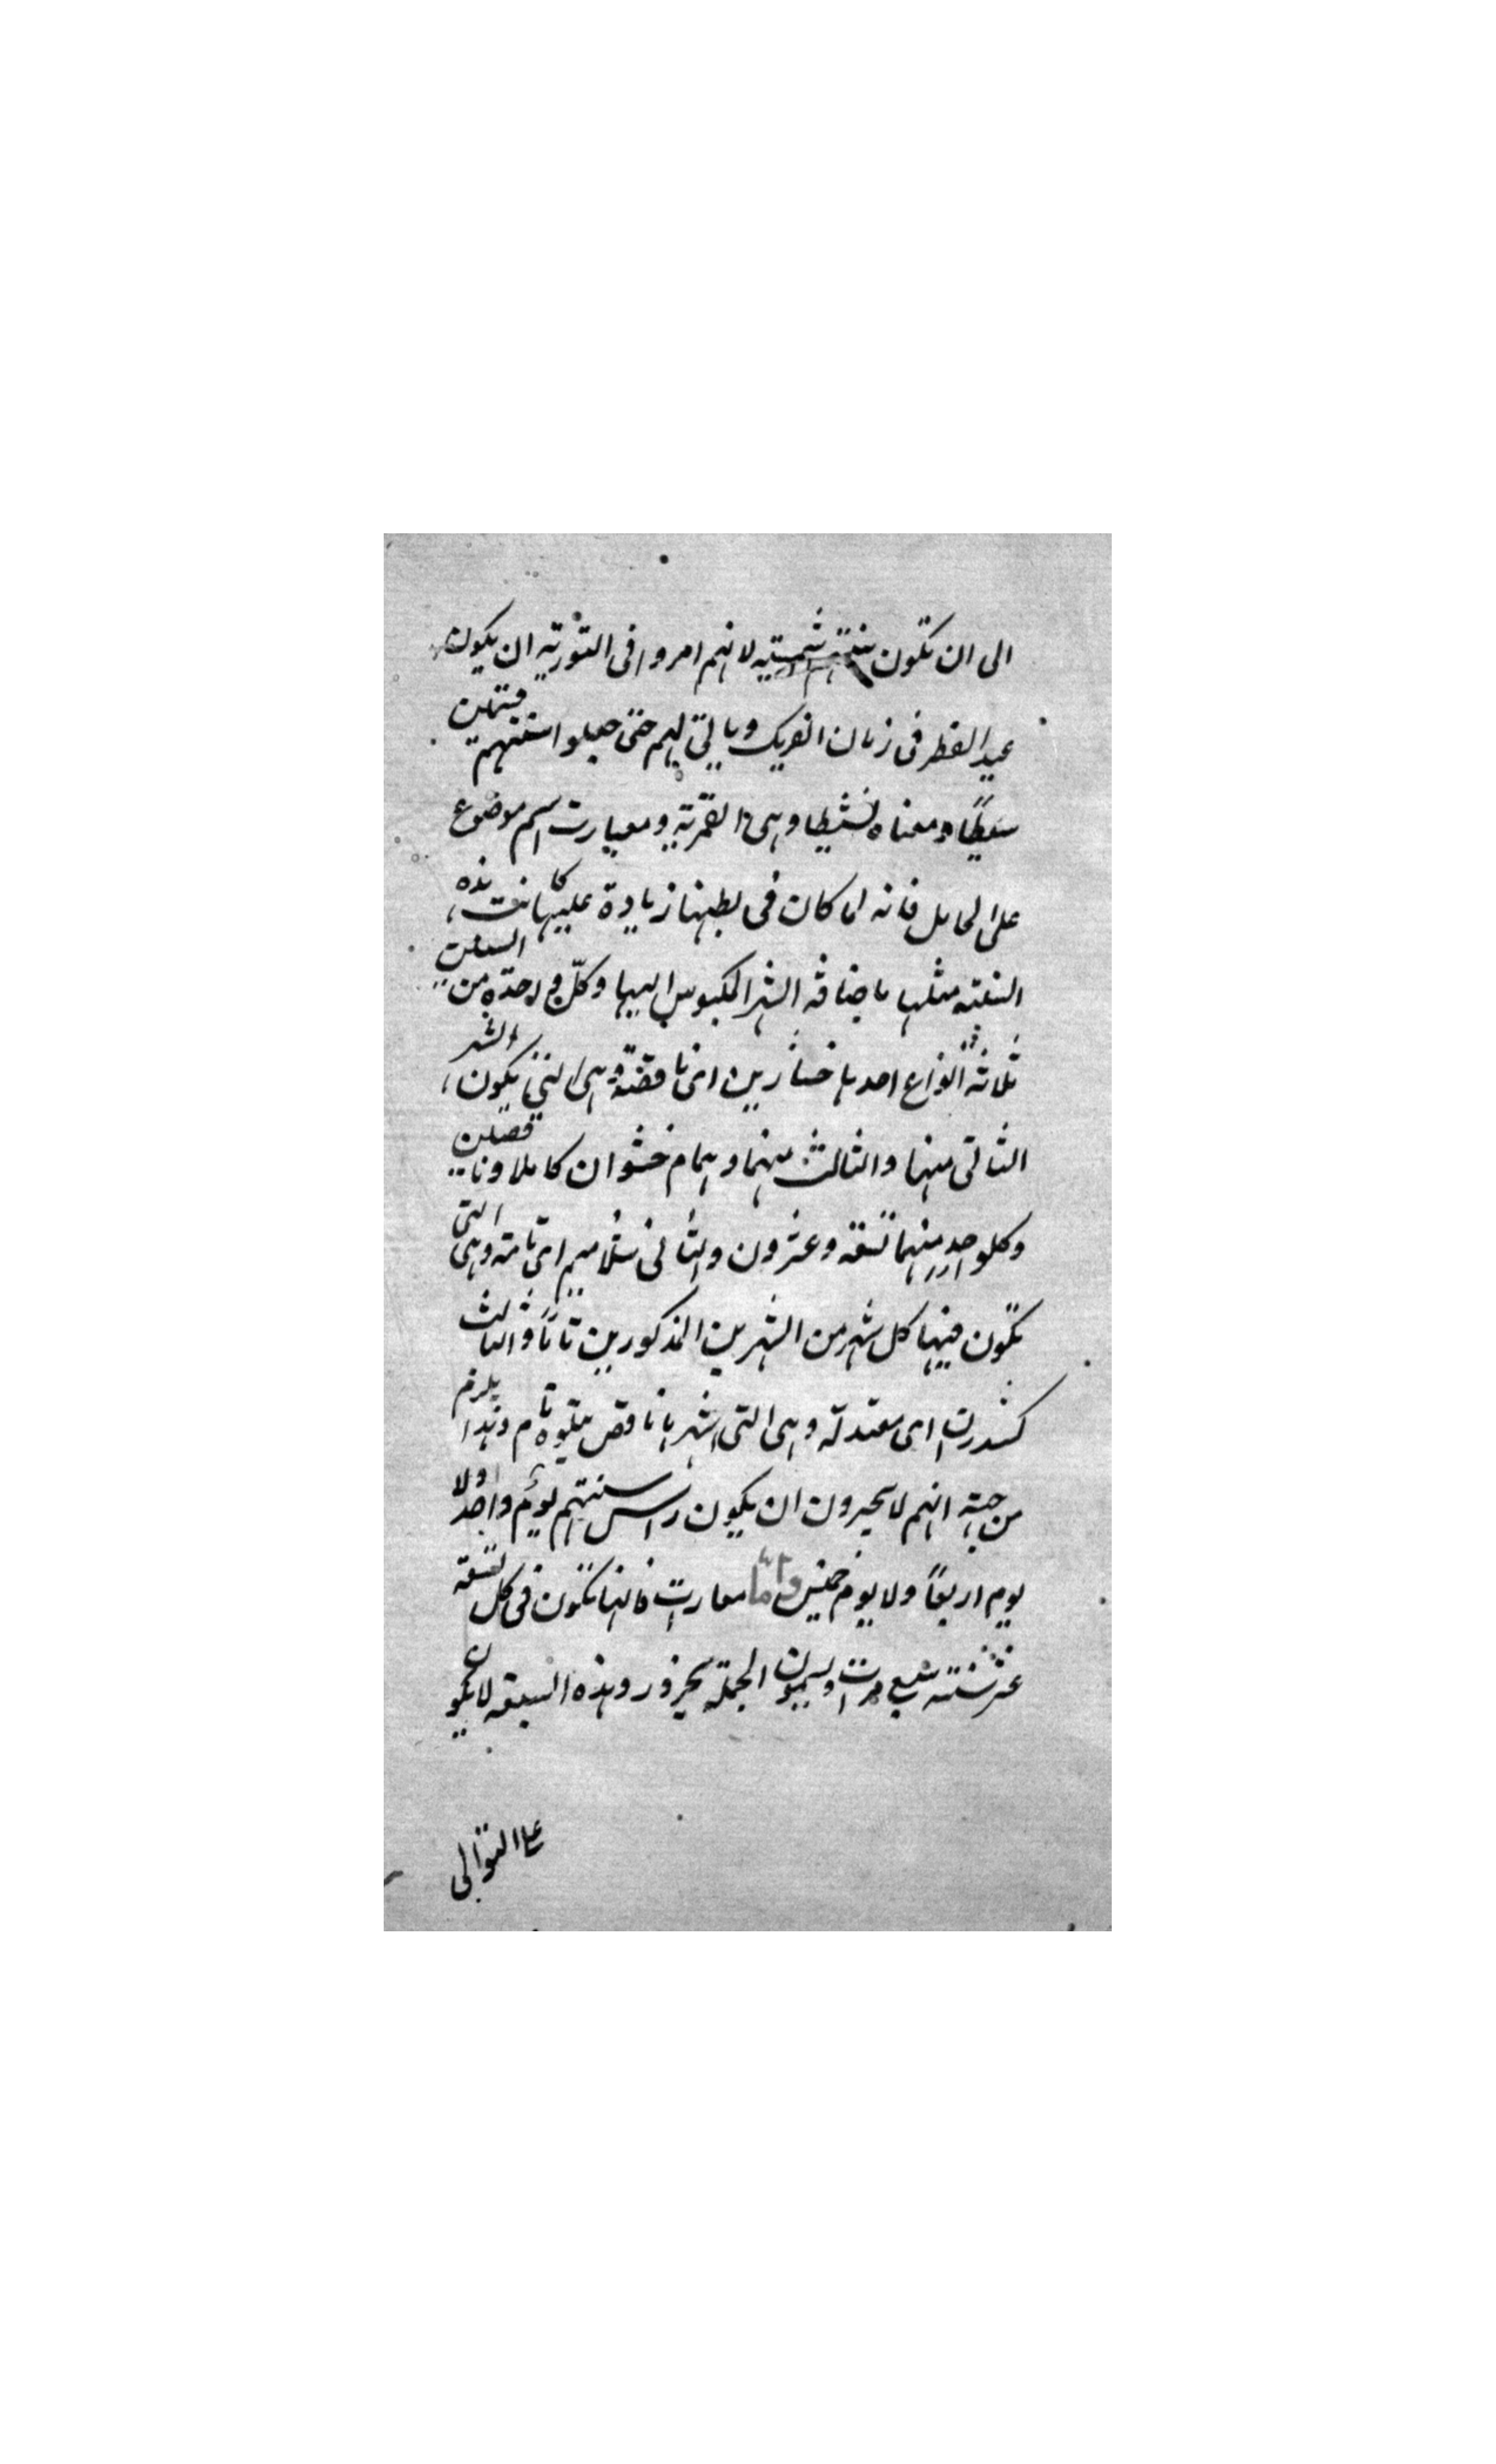 الى ان تكون سنتهم شمسيه لانهم امروا فى التوريه ان يكون
عيد الفطر فى زمان الفريك ويا لتى لهم حتى جعلوا سنتهم قسمين
سعطًا ومعناه نشيطا وهى القمرية ومعبارت اسم موضوع
على الحامل فانه لما كان فى بطنها زيادة عليها كانت هذه
السنته مثلها باضافه الشهر المكبوس اليها وكلّ واحدة من السنتين
ثلاثه انواع احدها خسارين اى ناقصة وهى التى يكون الشهر
الثانى منها والثالث منهما وهمام خشوان كاملا وناقصين
وكلواحد منهما تسعه وعشرون والثانى شلاميم اى تامه وهى التى
تكون فيها كل شهر من الشهرين المذكورين تامًا والثالث
كسدرن اى معتدله وهى التى اشهرها ناقص يتلوه تام وهذا يلزم
من جهة انهم لا يجيزون ان يكون راس سنتهم يوم واحد ولا
يوم اربعًا ولا يوم خميس واما معارت فانها تكون فى كل تسعه
عشر سنته سبع مرات ويسمون الجملة محزور وهذه السبعه لا تكون
على التوالى